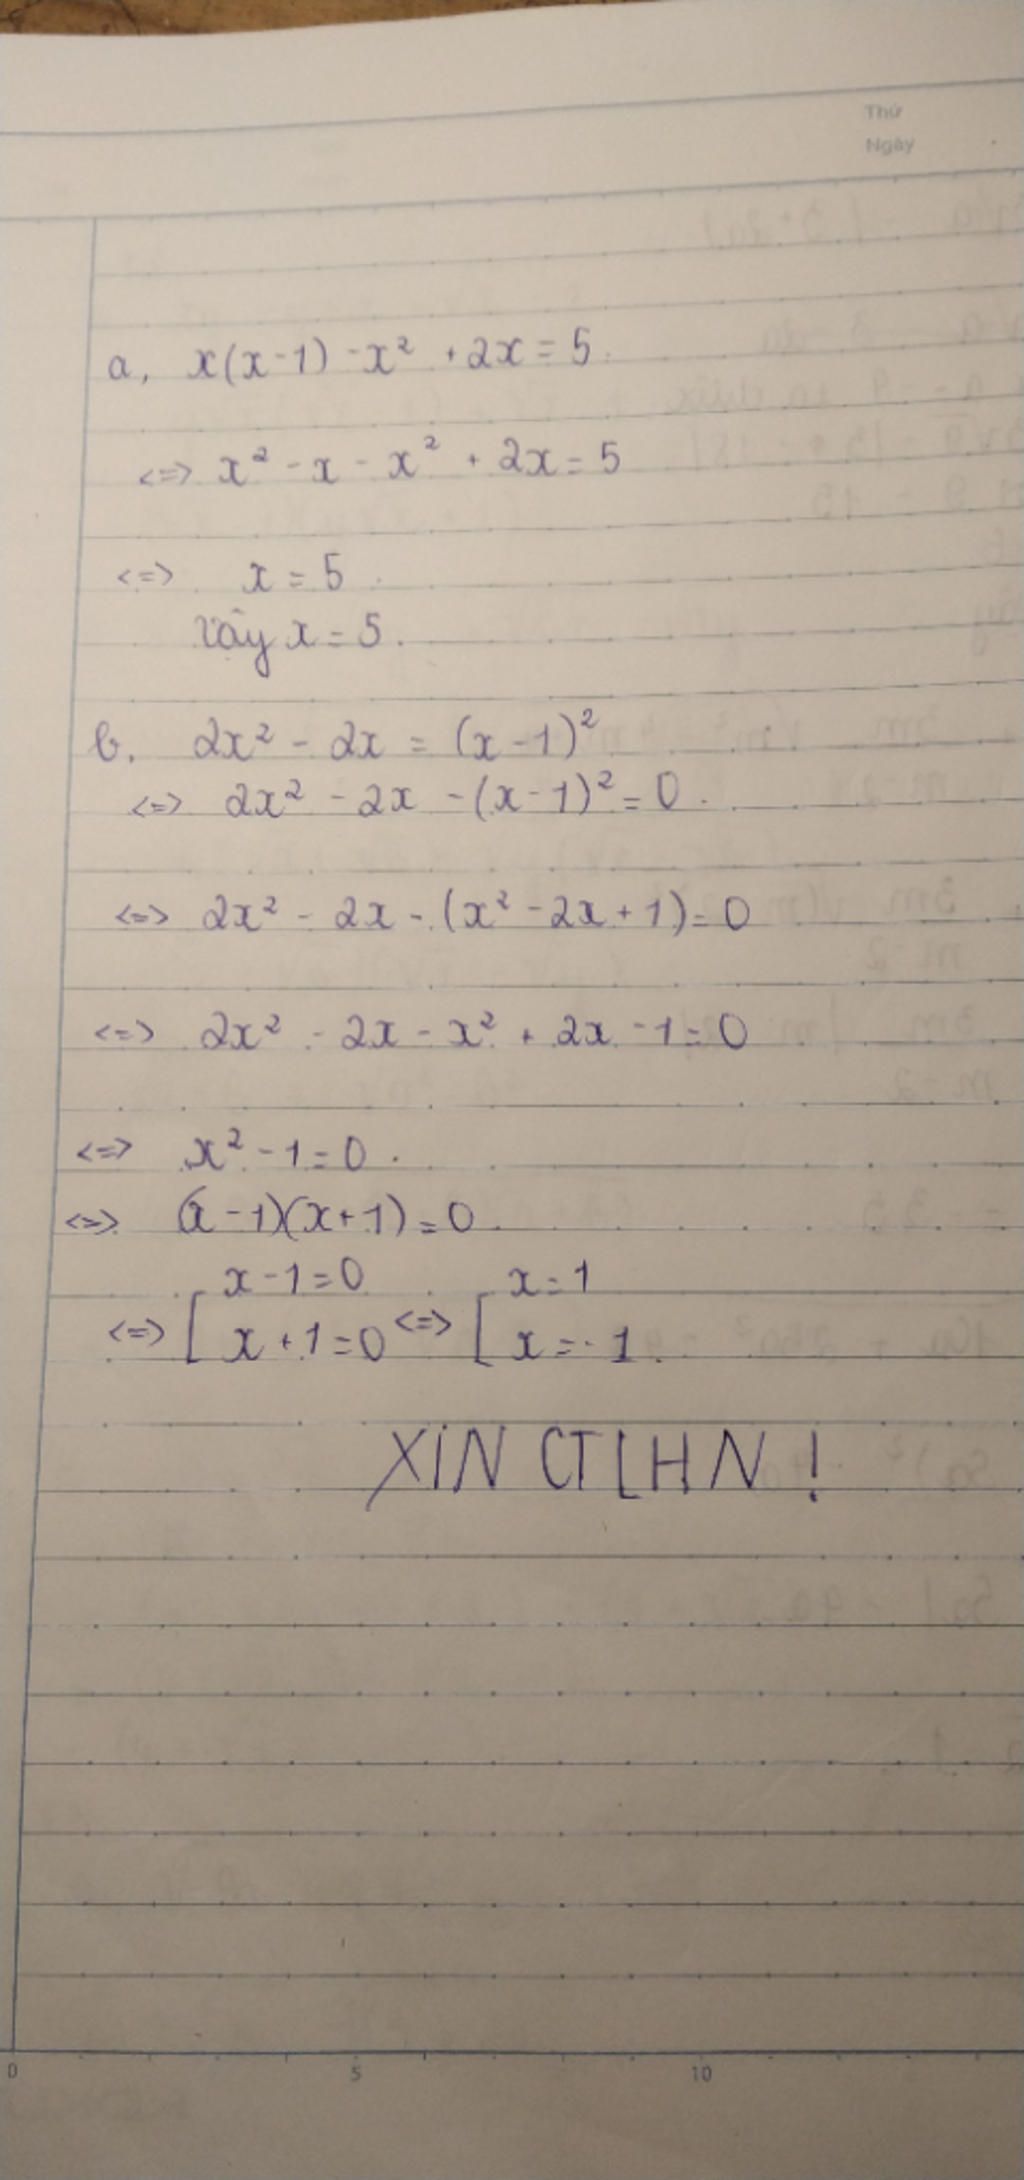 Thứ
Ngày
a, x(x-1) - x² + 2x = 5.
<=> x² - x - x² + 2x = 5
<=> x = 5
Vậy x = 5.
b. 2x² - 2x = (x-1)²
<=> 2x² - 2x - (x-1)² = 0.
<=> 2x² - 2x - (x² - 2x + 1) = 0
<=> 2x² - 2x - x² + 2x - 1 = 0
<=> x² - 1 = 0.
<=> (x-1)(x+1) = 0.
<=> [ x-1=0 <=> [ x=1
x+1=0 x=-1.
XIN CTLHN !
0 5 10